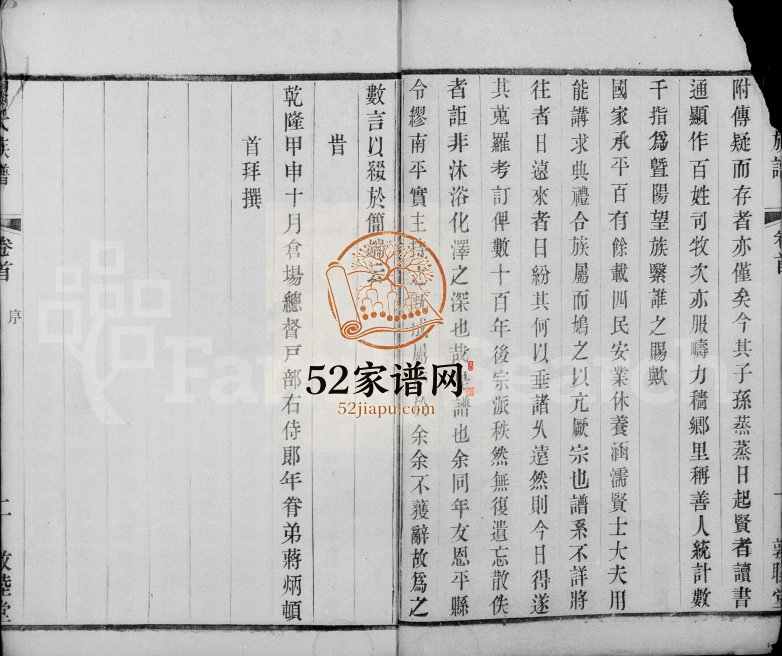 附傳疑而存者亦僅矣今其子孫蒸蒸日起賢者讀書
通顯作百姓司牧次亦服疇力穡鄉里稱善人統計數
千指爲暨陽望族繄誰之賜歟
國家承平百有餘載四民安業休養涵濡賢士大夫用
能講求典禮合族屬而鳩之以亢厥宗也譜系不詳將
往者日遠來者日紛其何以垂諸久遠然則今日得遂
其蒐羅考訂俾數十百年後宗派秩然無復遺忘散佚
者詎非沐浴化澤之深也哉是譜也余同年友恩平縣
令繆南平實主 成屬 余余不獲辭故爲之
數言以綴於簡端云
旹
乾隆甲申十月倉場總督戸部右侍郎年眷弟蔣炳頓
首拜撰
氏族譜
卷首
序
二
敦睦堂
52家谱网
52jiapu.com
FamilySearch